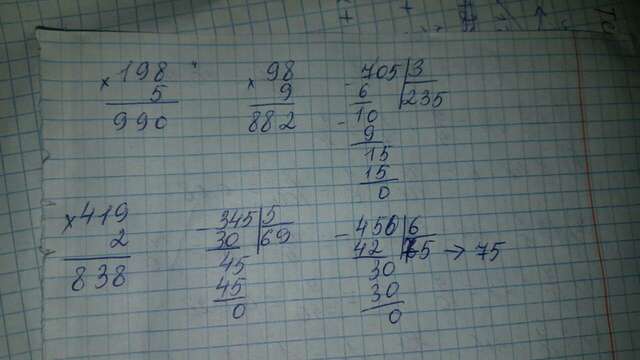 ×198
5
990
×98
9
882
-705|3
6 235
-10
9
15
15
0
×419
2
838
-345|5
30 69
45
45
0
-450|6
42 75 → 75
30
30
0